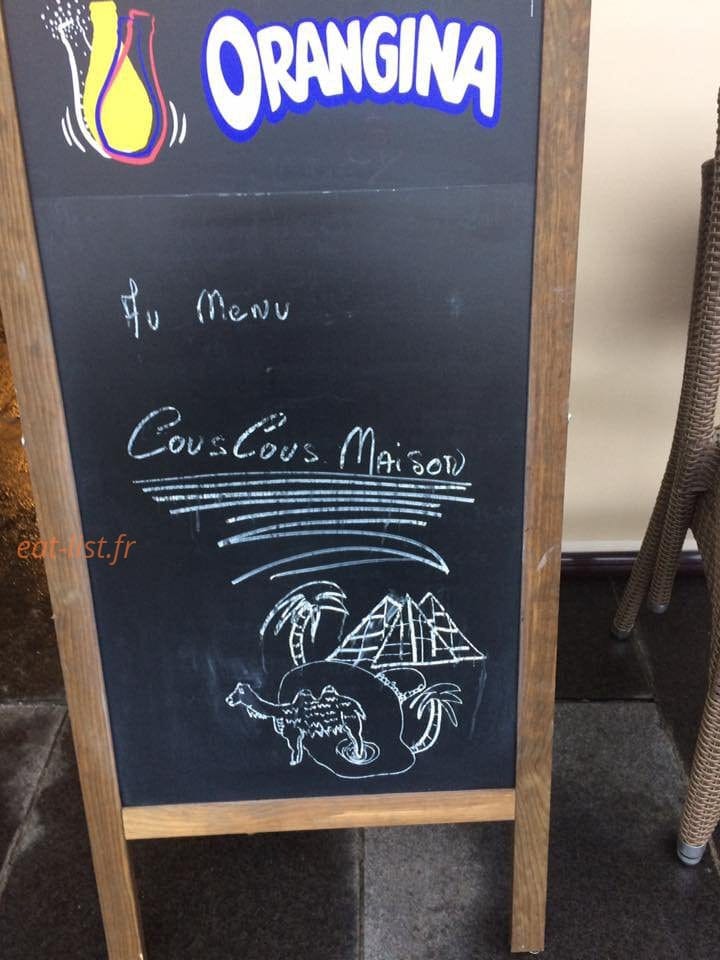 ORANGINA
Au Menu
CousCous Maison
eat-list.fr